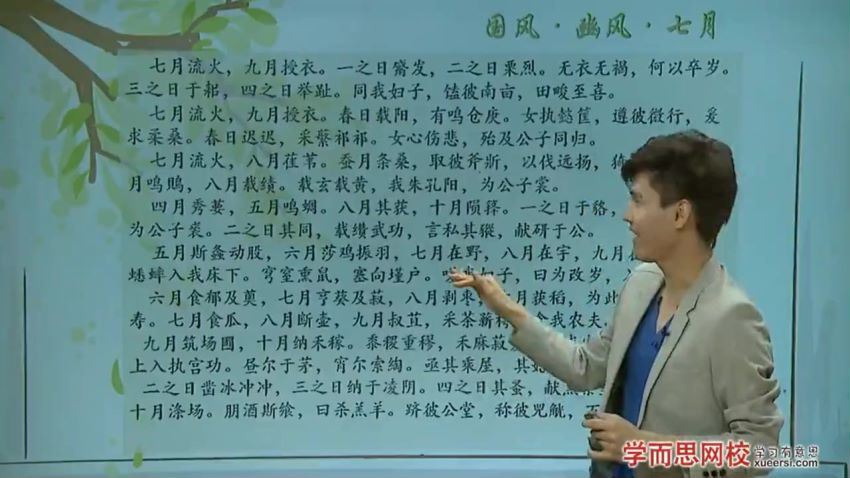 国风·豳风·七月
七月流火，九月授衣。一之日觱发，二之日栗烈。无衣无褐，何以卒岁。
三之日于耜，四之日举趾。同我妇子，馌彼南亩，田畯至喜。
七月流火，九月授衣。春日载阳，有鸣仓庚。女执懿筐，遵彼微行，爰
求柔桑。春日迟迟，采蘩祁祁。女心伤悲，殆及公子同归。
七月流火，八月萑苇。蚕月条桑，取彼斧斨，以伐远扬，猗
月鸣鵙，八月载绩。载玄载黄，我朱孔阳，为公子裳。
四月秀葽，五月鸣蜩。八月其获，十月陨箨。一之日于貉，
为公子裘。二之日其同，载缵武功，言私其豵，献豜于公。
五月斯螽动股，六月莎鸡振羽，七月在野，八月在宇，九月在
蟋蟀入我床下。穹窒熏鼠，塞向墐户。嗟我妇子，曰为改岁，
六月食郁及薁，七月亨葵及菽，八月剥枣，月获稻，为此
寿。七月食瓜，八月断壶，九月叔苴，采荼薪樗，食我农夫
九月筑场圃，十月纳禾稼。黍稷重穋，禾麻菽
上入执宫功。昼尔于茅，宵尔索绹。亟其乘屋，其
二之日凿冰冲冲，三之日纳于凌阴。四之日其蚤，献羔祭
十月涤场。朋酒斯飨，曰杀羔羊。跻彼公堂，称彼兕觥，
学而思网校 学习有意思
xueersi.com